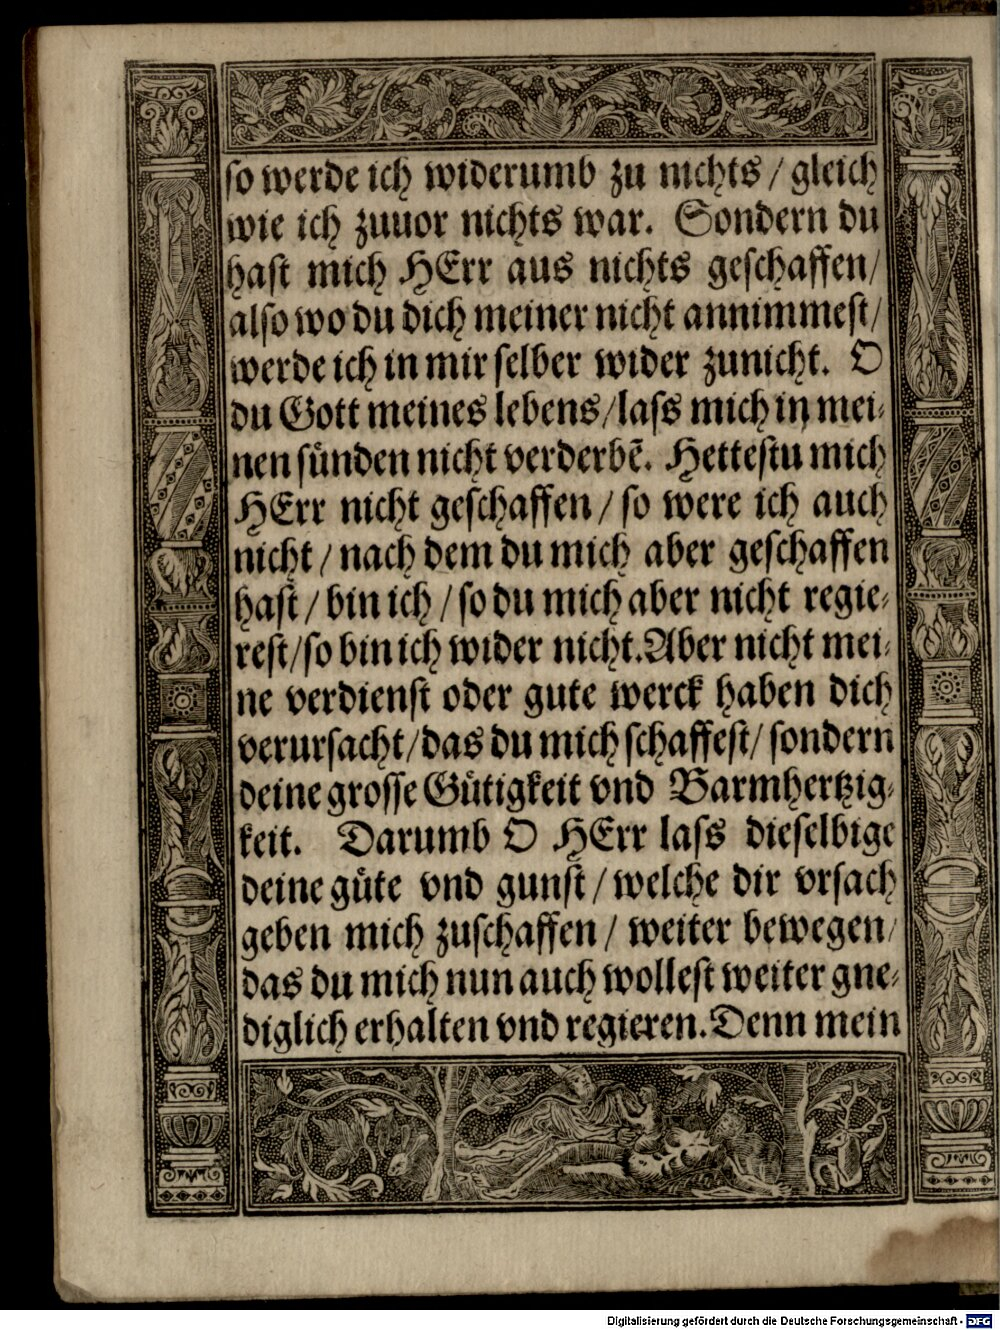 so werde ich widerumb zu nichts / gleich
wie ich zuuor nichts war. Sondern du
hast mich HErr aus nichts geschaffen/
also wo du dich meiner nicht annimmest/
werde ich in mir selber wider zunicht. O
du Gott meines lebens/lass mich in mei-
nen sünden nicht verderbẽ. Hettestu mich
HErr nicht geschaffen / so were ich auch
nicht / nach dem du mich aber geschaffen
hast / bin ich / so du mich aber nicht regie-
rest/so bin ich wider nicht. Aber nicht mei-
ne verdienst oder gute werck haben dich
verursacht/das du mich schaffest/ sondern
deine grosse Gütigkeit vnd Barmhertzig-
keit. Darumb O HErr lass dieselbige
deine güte vnd gunst / welche dir vrsach
geben mich zuschaffen / weiter bewegen/
das du mich nun auch wollest weiter gne-
diglich erhalten vnd regieren. Denn mein
Digitalisierung gefördert durch die Deutsche Forschungsgemeinschaft - DFG